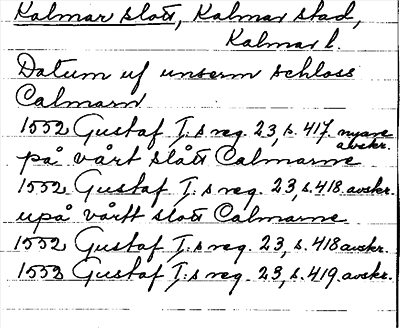 Kalmar slott, Kalmar stad,
Kalmar l.
Datum uf unserm schloss
Calmarn
1552 Gustaf I:s reg. 23, s. 417. nyare
avskr.
på vårt slått Calmarne
1552 Gustaf I:s reg. 23, s. 418. avskr.
upå vårtt slott Calmarne
1552 Gustaf I:s reg. 23, s. 418 avskr.
1552 Gustaf I:s reg. 23, s. 419. avskr.